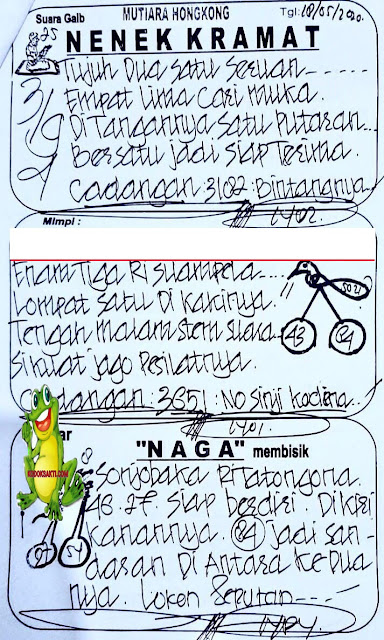 Suara Gaib MUTIARA HONGKONG Tgl: 18/05/2020.
25
NENEK KRAMAT
Tujuh Dua Satu Seruan
Empat Lima Cari Muka.
DiTangannya Satu Putaran...
Bersatu jadi Siap Terima.
Cadangan: 3182: Bintangnya
1402.
Mimpi :
Enam Tiga
Lompat Satu Di Kakinya.
Tengah Malam Stem Suara
5021
43 84
Sikuat jago Pesilatnya.
Cadangan: 3651: No Sinji Kodena
1401.
ar "NAGA" membisik
KODOKSAKTI.COM
48.27. Siap Berdiri. Dikiri
Kanannya. 84 jadi San-
daran Di Antara Kedua
nya. Seputan